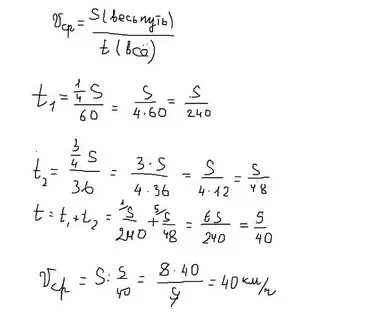 Vср = S(весь путь) / t(всё)
t₁ = ¼S / 60 = S / 4·60 = S / 240
t₂ = ¾S / 36 = 3·S / 4·36 = S / 4·12 = S / 48
t = t₁ + t₂ = ¹⁾S / 240 + ⁵⁾S / 48 = 6S / 240 = S / 40
Vср = S : S / 40 = S·40 / S = 40 км/ч